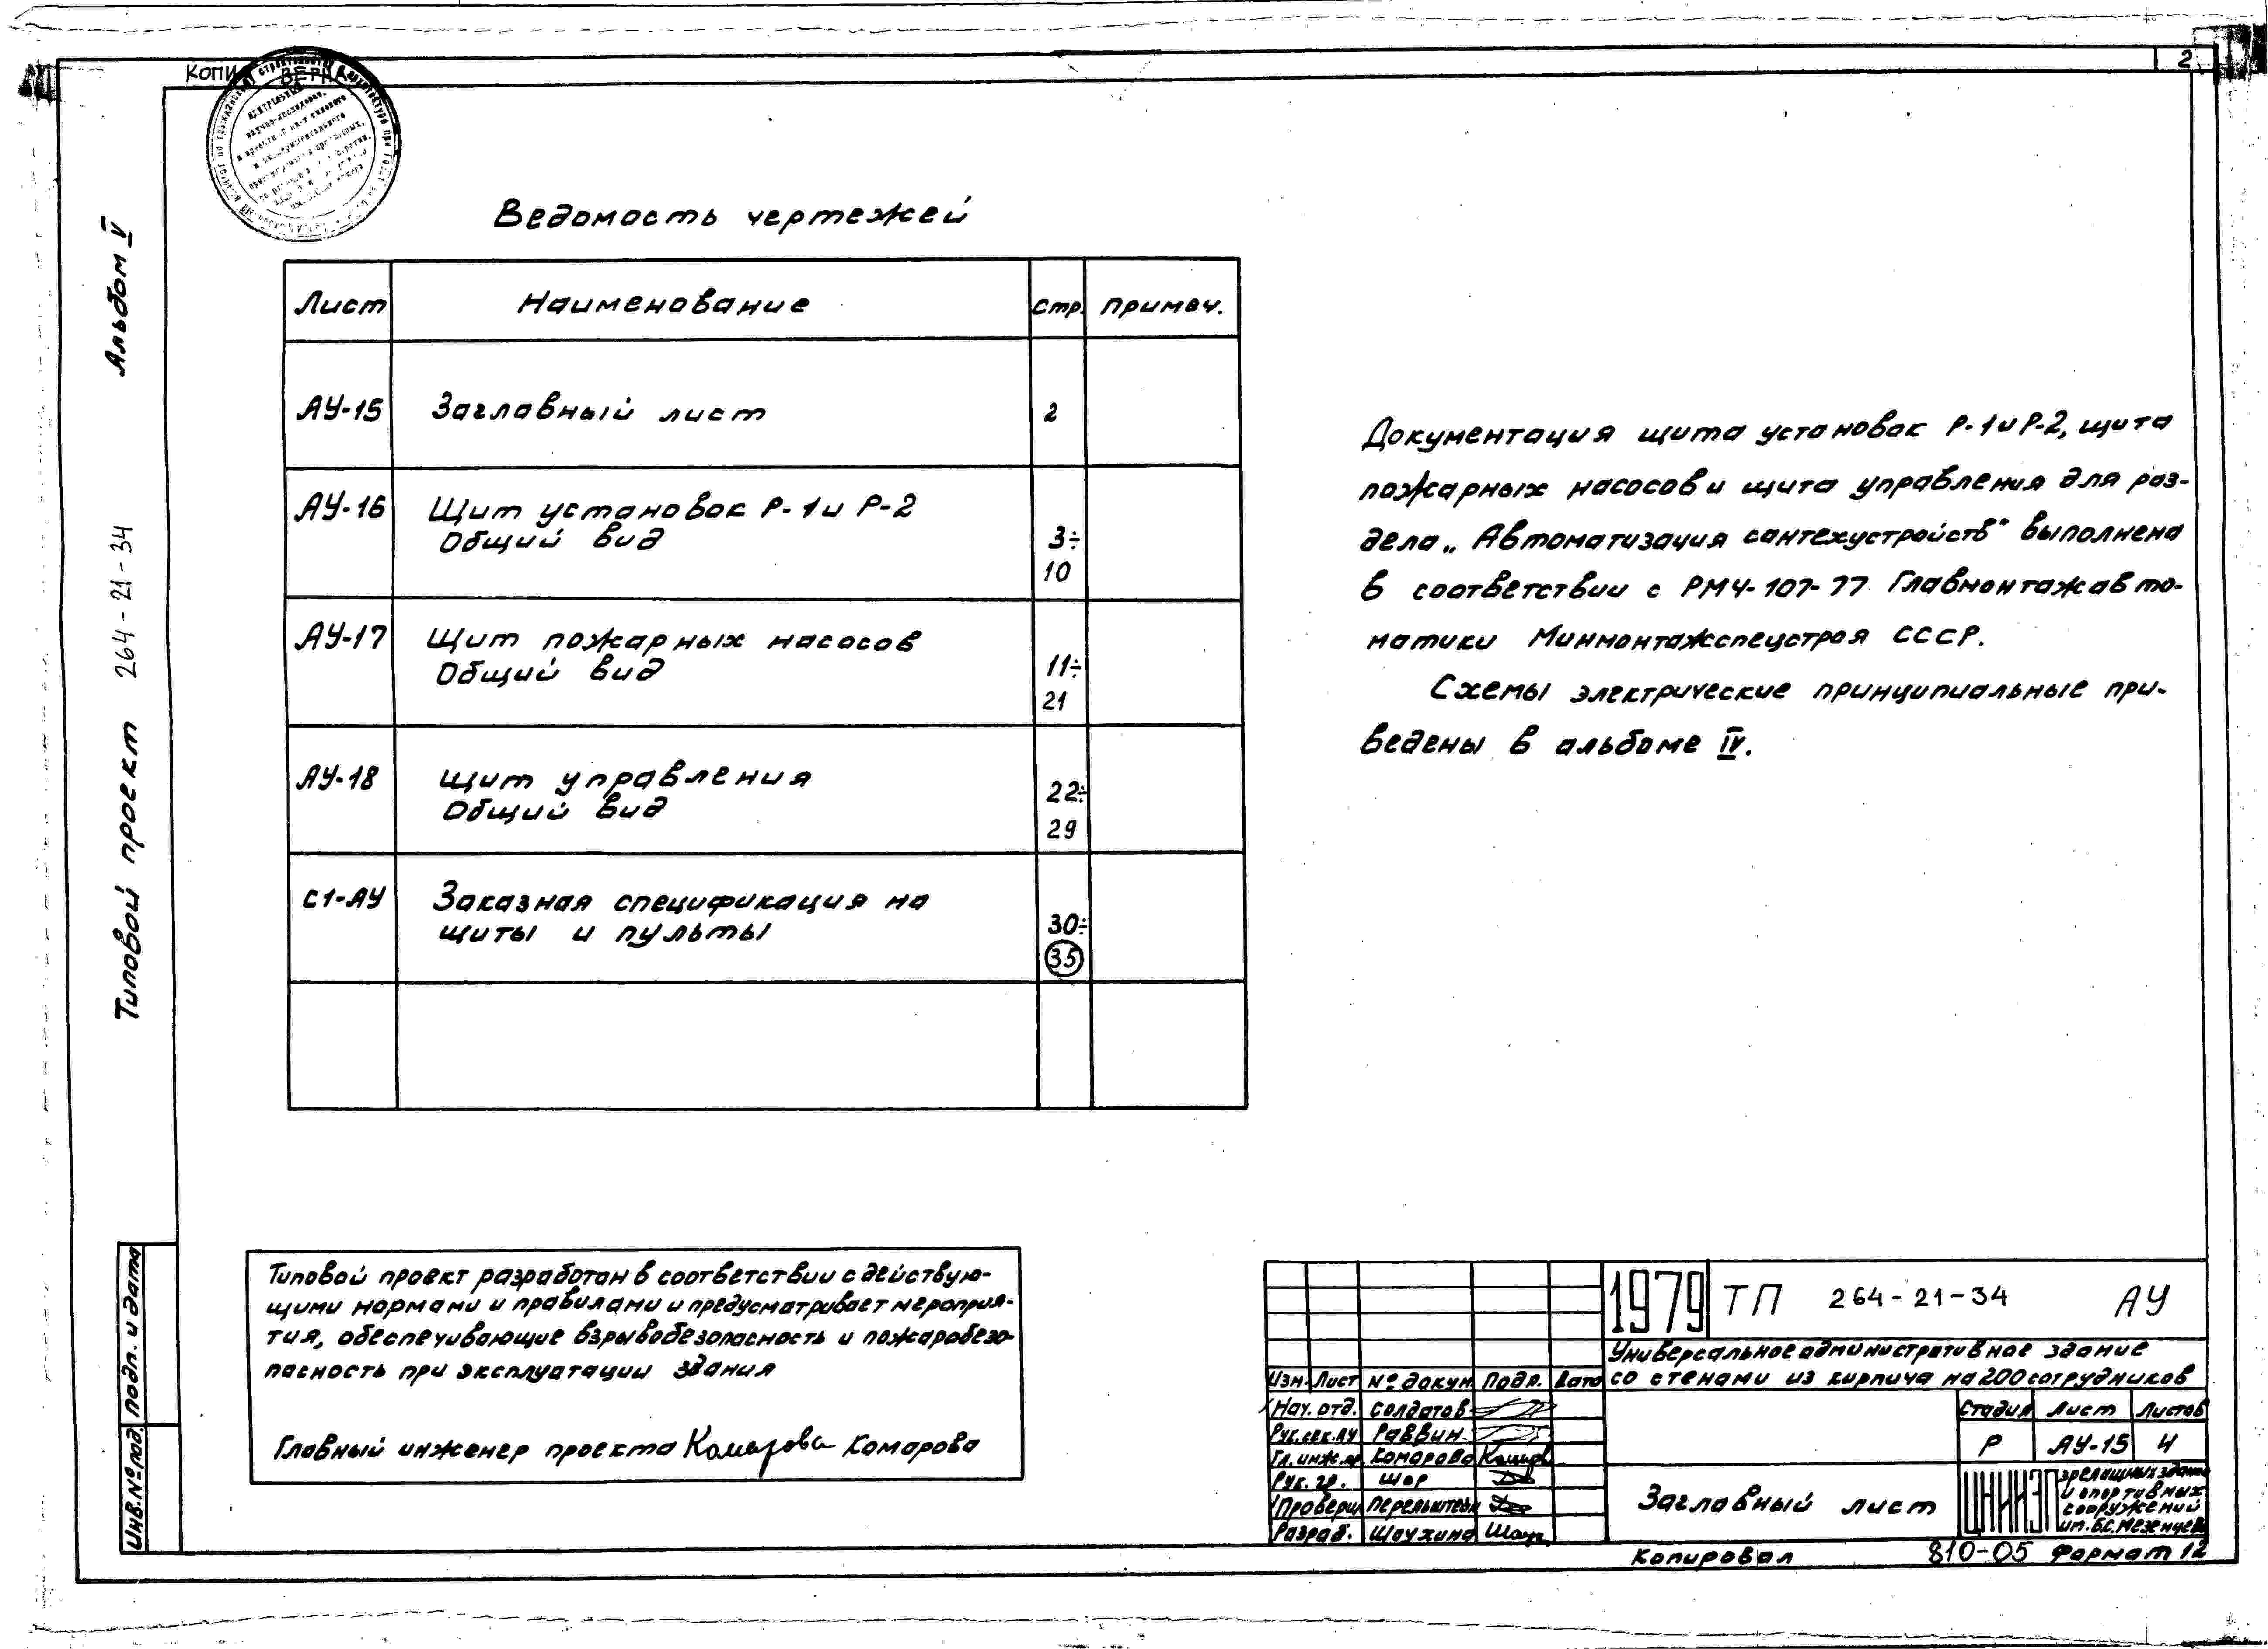 2
КОПИЯ ВЕРНА
Альбом V
Типовой проект 264-21-34
Ведомость чертежей
Лист Наименование Стр. Примеч.
АУ-15 Заглавный лист 2
АУ-16 Щит установок Р-1 и Р-2
Общий вид 3÷
10
АУ-17 Щит пожарных насосов
Общий вид 11÷
21
АУ-18 Щит управления
Общий вид 22÷
29
С1-АУ Заказная спецификация на
щиты и пульты 30÷
35
Документация щита установок Р-1 и Р-2, щита
пожарных насосов и щита управления для раз-
дела „Автоматизация сантехустройств" выполнена
в соответствии с РМ4-107-77 Главмонтажавто-
матики Минмонтажспецстроя СССР.
Схемы электрические принципиальные при-
ведены в альбоме IV.
Типовой проект разработан в соответствии с действую-
щими нормами и правилами и предусматривает мероприя-
тия, обеспечивающие взрывобезопасность и пожаробезо-
пасность при эксплуатации здания
Главный инженер проекта Комарова Комарова
Инв.№под. подп. и дата
1979 ТП 264-21-34 АУ
Универсальное административное здание
со стенами из кирпича на 200 сотрудников
Изм. Лист № докум. Подп. Дата
Нач. отд. Солдатов
Рук.сек.АУ Раввин
Гл.инж.пр. Комарова
Рук. гр. Шор
Проверил Перельштейн
Разраб. Шаухина
Стадия Лист Листов
Р АУ-15 4
Заглавный лист
ЦНИИЭП зрелищных зданий
и спортивных
сооружений
им. Б.С. Мезенцева
Копировал 810-05 Формат 12